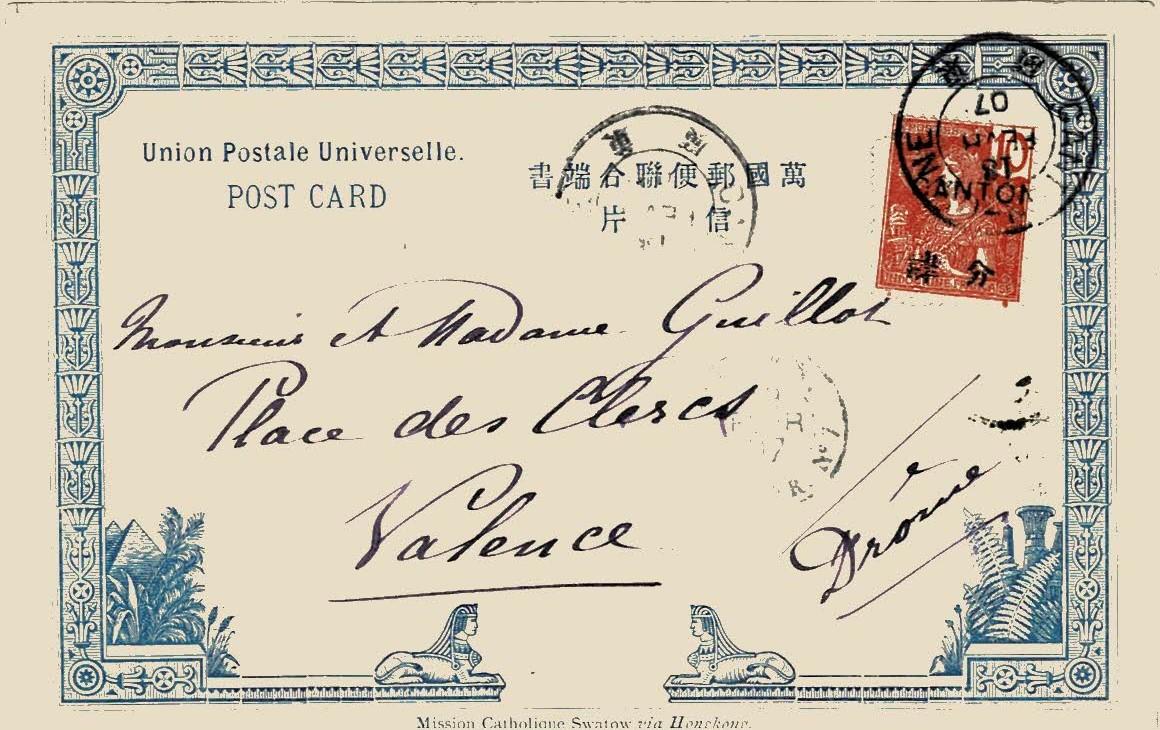 Union Postale Universelle.
POST CARD
萬國郵便聯合端書
信片
CANTON
07
肆分
Monsieur et Madame Guillot
Place des Clercs
Valence
Drôme
Mission Catholique Swatow via Hongkong.